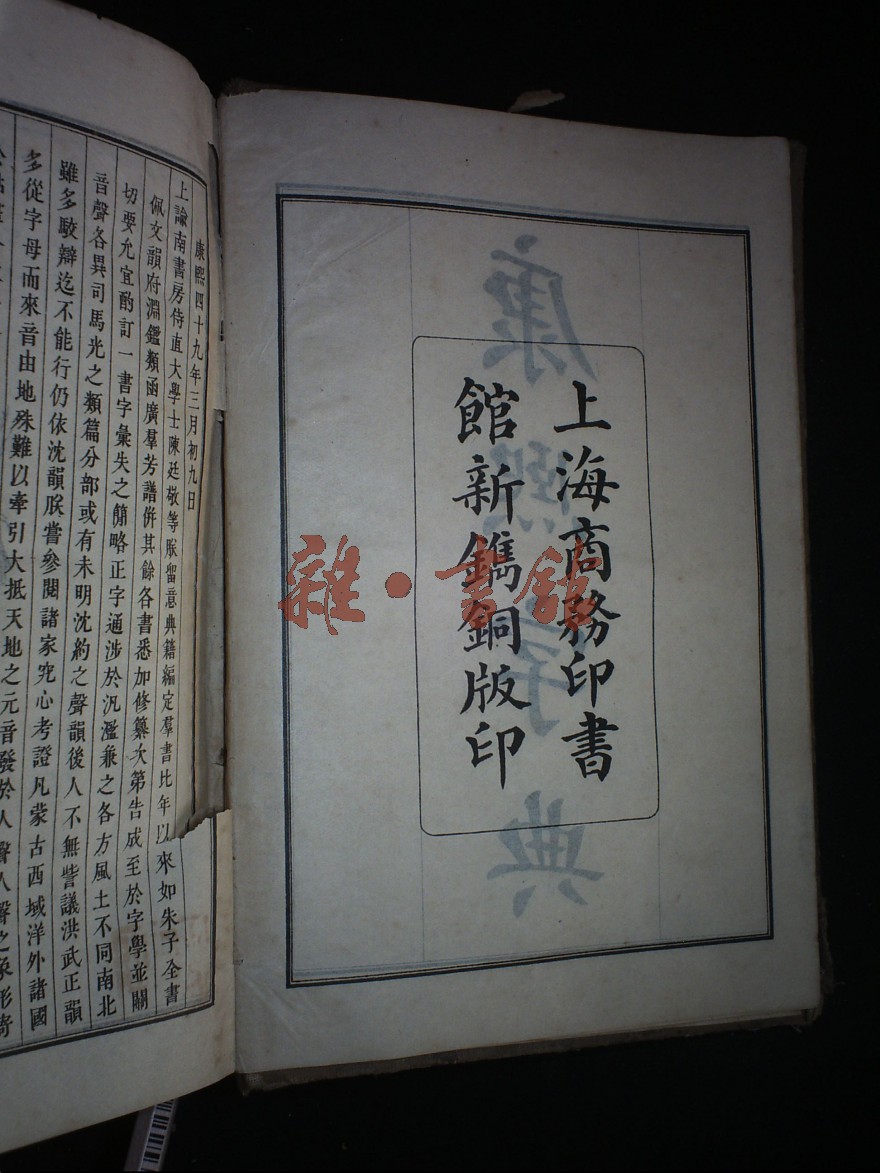 上海商務印書
館新鐫銅版印
康熙字典
雜·書館
康熙四十九年三月初九日
上諭南書房侍直大學士陳廷敬等朕留意典籍編定羣書比年以來如朱子全書
佩文韻府淵鑑類函廣羣芳譜併其餘各書悉加修纂次第告成至於字學並關
切要允宜酌訂一書字彙失之簡略正字通涉於汎濫兼之各方風土不同南北
音聲各異司馬光之類篇分部或有未明沈約之聲韻後人不無訾議洪武正韻
雖多駁辯迄不能行仍依沈韻朕嘗參閱諸家究心考證凡蒙古西域洋外諸國
多從字母而來音由地殊難以牽引大抵天地之元音發於人聲人聲之象形寄